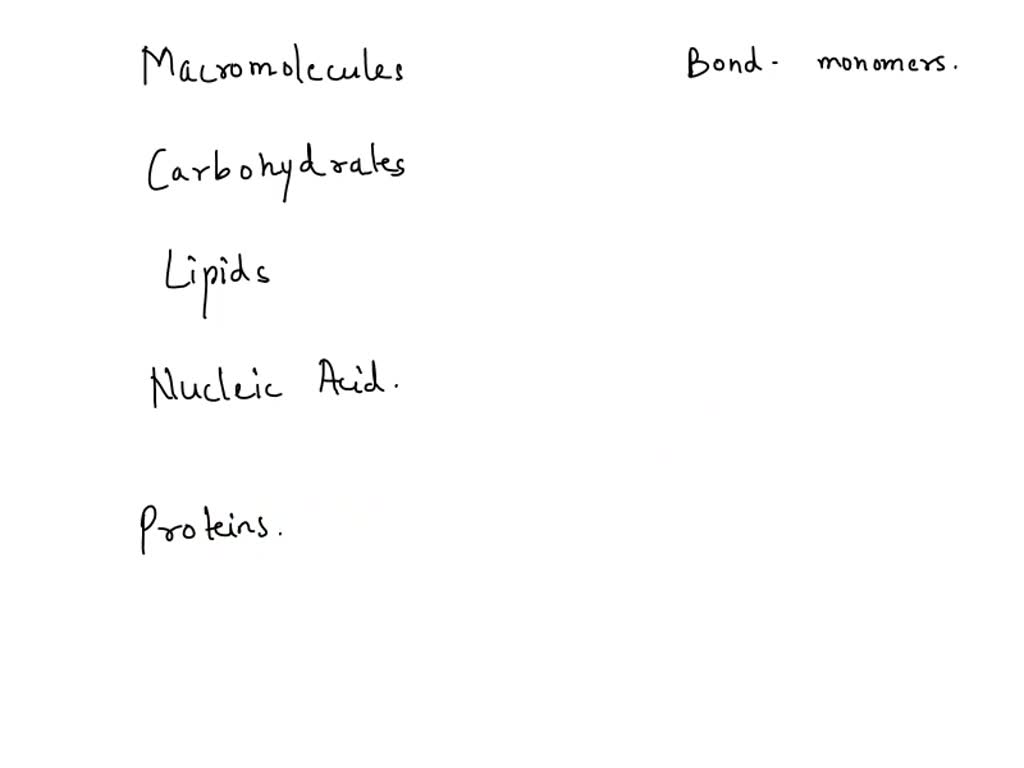 Macromolecules Bond - monomers.
Carbohydrates
Lipids
Nucleic Acid.
Proteins.